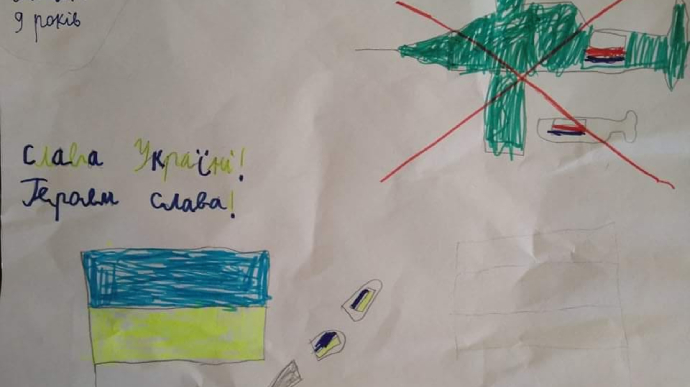 9 років
Слава Україні!
Героям слава!